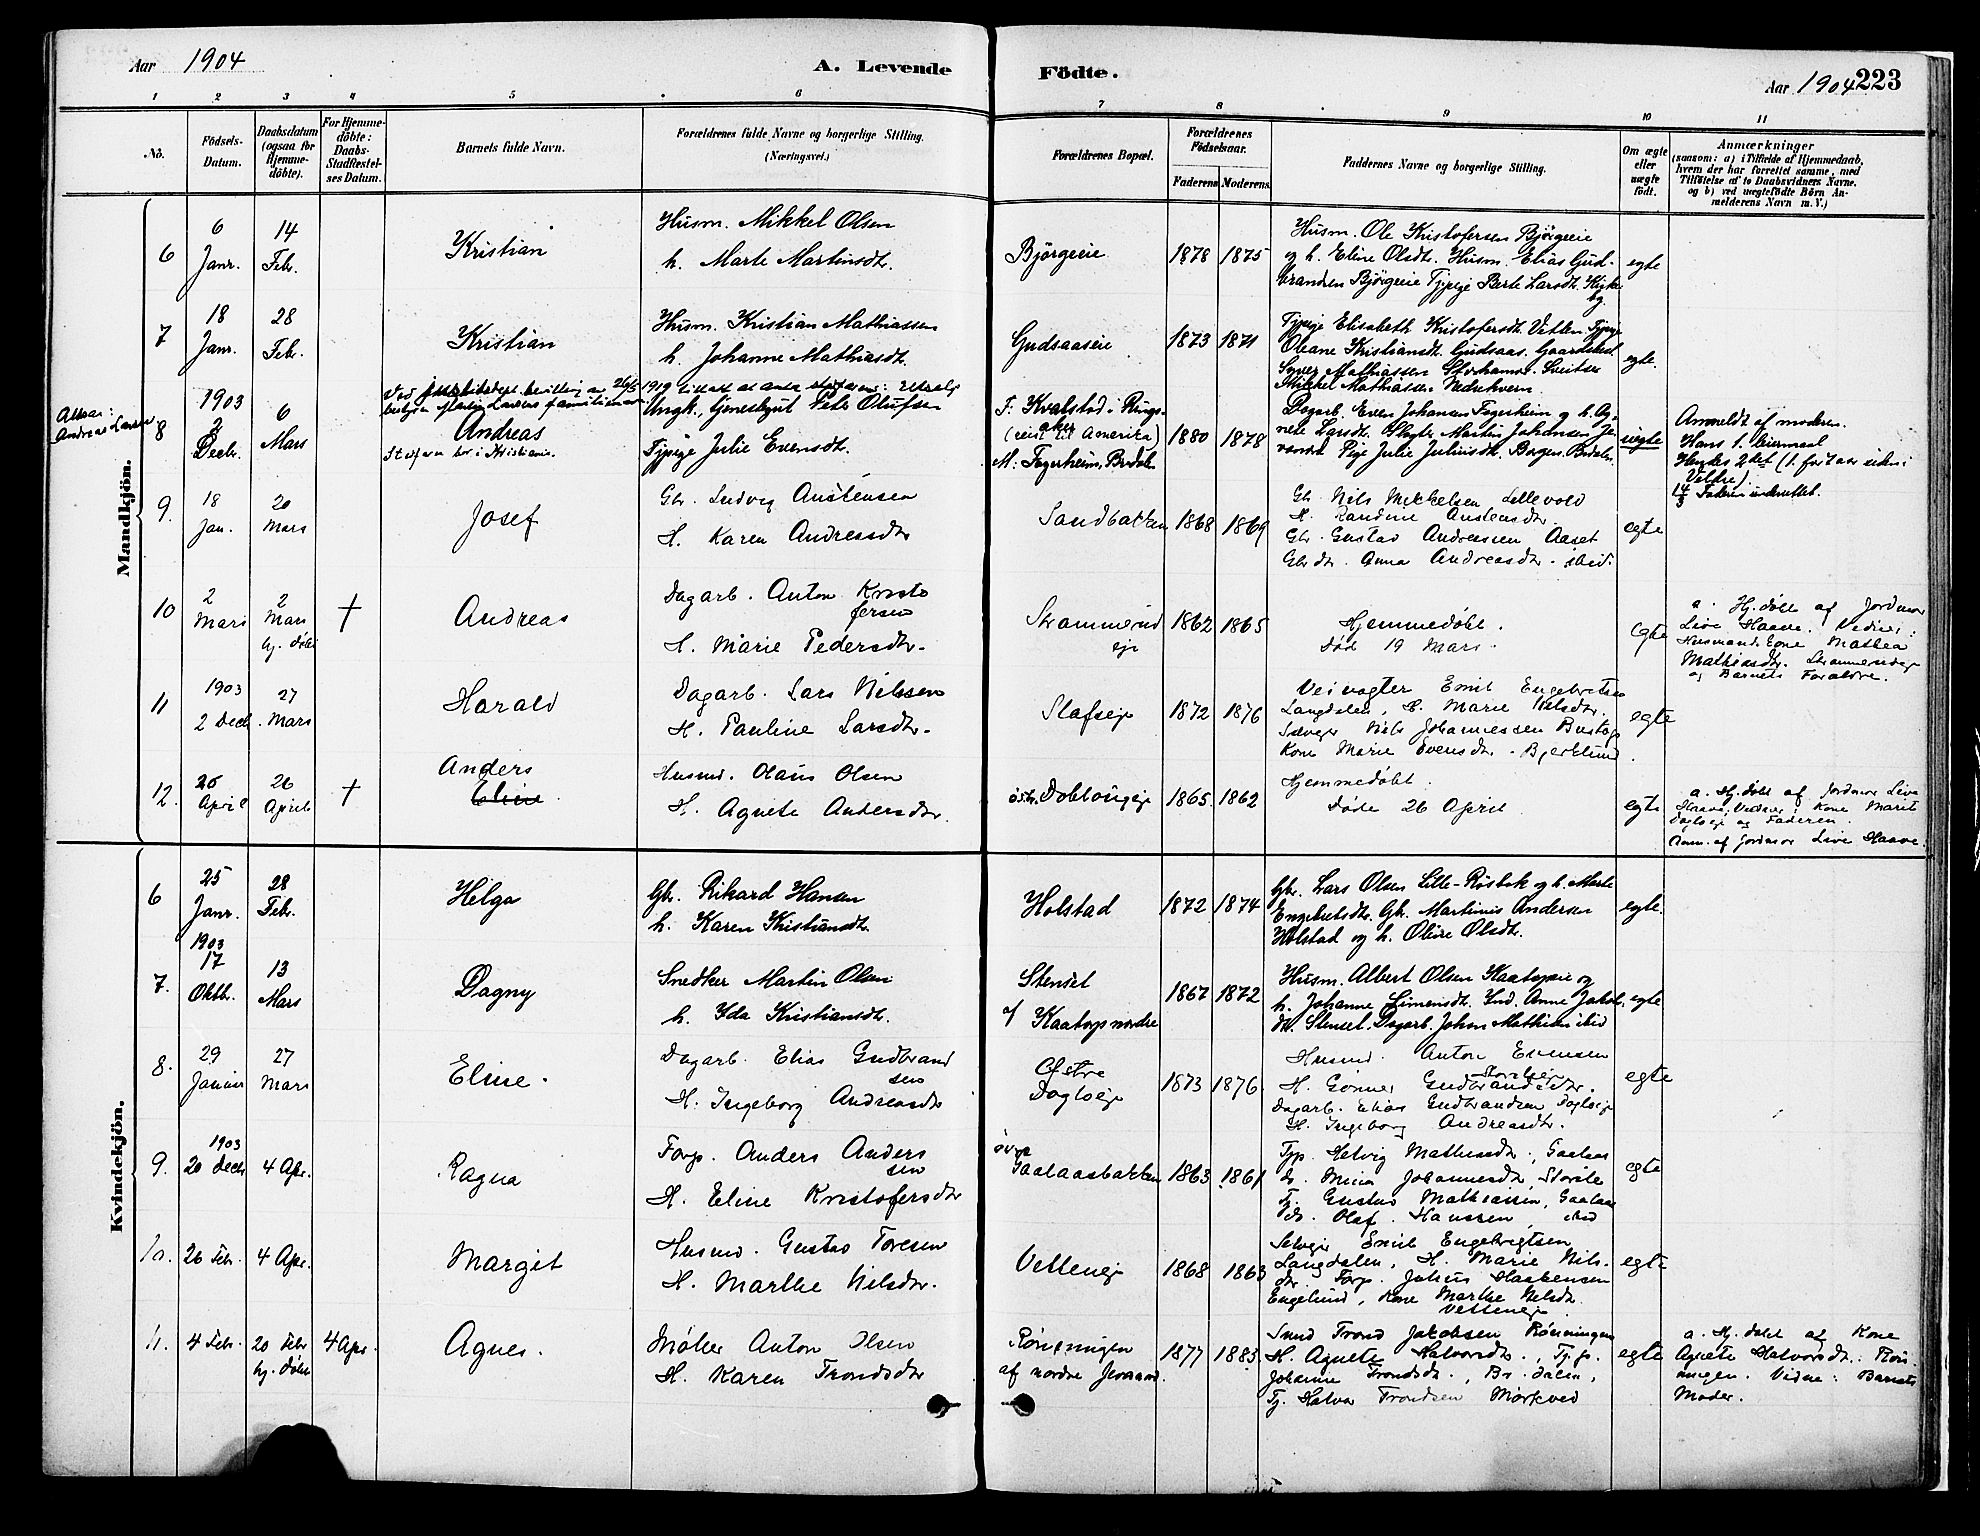 Aar 1904
A. Levende
Födte.
Aar 1904
223
1 2 3 4 5 6 7 8 9 10 11
No.
Födsels-Datum.
Daabsdatum (ogsaa for Hjemmedöbte).
For Hjemmedöbte: Daabs-Stadfæstelses Datum.
Barnets fulde Navn.
Forældrenes fulde Navne og borgerlige Stilling. (Næringsvei.)
Forældrenes Bopæl.
Forældrenes Födselsaar.
Faderens
Moderens.
Faddernes Navne og borgerlige Stilling.
Om ægte eller uægte födt.
Anmærkninger
(saasom: a) i Tilfælde af Hjemmedaab,
hvem der har forrettet samme, med
Tilföielse af to Daabsvidners Navne.
og b) ved uægtefödte Börn Anmelderens Navn m. V.)
Mandkjön.
6
6 Janr.
14 Febr.
Kristian
Husm. Mikkel Olsen
h. Marte Martinsdtr.
Bjørgeeie
1878
1875
Husm. Ole Kristofersen Bjørgeeie
og h. Eline Olsdtr. Husm. Elias Gud-
brandsen Bjørgeeie Tjpige Berte Larsdtr.
egte
7
18 Janr.
28 Febr.
Kristian
Husm. Kristian Mathiassen
h. Johanne Mathiasdtr.
Gudsaaseie
1873
1871
Tjpige Elisabeth Kristofersdtr. Vetlen. Tjpige
Oleane Kristiansdtr. Gudsaas.
Mathiassen
Mikkel Mathiassen
egte.
Andreas Larsen
8
1903
2 Decbr.
6 Mars
Andreas
Stedfaren bor i Kristiania.
Ungk. tjenestgut Peter Olufsen
Tjpige Julie Evensdtr.
F: Kvalstad i Rings-
aker
(reist til Amerika)
M: Fagerheim, Brdalen
1880
1878
Dagarb. Even Johansen Fagerheim og h. Ag-
nete Larsdtr. Martin Johansen
Pige Julie Juliusdtr. Borgen Brdalen
uegte
Anmeldt af moderen.
Hans 1. leiermaal
Hendes 2det (1. for aar siden i
Veldre)
14/3 Faderen underrettet.
9.
18 Jan.
20 Mars
Josef
Gbr. Ludvig Austensen
H. Karen Andreasdtr
Sandbakken
1868
1869
Gbr. Nils Mikkelsen Lillevold
H. Randine Austensdtr.
Gbr. Gustav Andreassen Aaset
Gbrdtr. Anna Andreasdtr. ibid.
egte
10
2 Mars
2 Mars hj. døbt
†
Andreas
Dagarb. Anton Kristo
fersen
H. Marie Pedersdtr.
Skammerud
eje
1862
1865
Hjemmedøbt.
Død 19 Mars.
egte
a. Hj. døbt af Jordmor
Live Haave. Vidner:
Husmands Kone Mathea
Mathiasdtr. Skammerudeje
og Barnets Forældre.
11
1903
2 Decb.
27 Mars
Harald
Dagarb. Lars Nilssen
H. Pauline Larsdtr.
Slafseje
1872
1876
Veivogter Emil Engebretsen
Langdalen, H. Marie Nilsdtr.
Selveier Nils Johannessen
Kone Marie Evensdtr. Bjerklund.
egte
12.
26 April
26 April
†
Anders
Eline
Husmd. Olaus Olsen
H. Agnete Andersdtr.
østr. Doblougeje
1865.
1862
Hjemmedøbt.
Døde 26 April
egte
a. Hj. døbt af Jordmor Live
Haave. Vidner: Kone Marit
Dagloeje og Faderen.
Anm. af Jordmor Live Haave.
Kvindekjön.
6
25 Janr.
28 Febr.
Helga
Gbr. Rikard Hansen
h. Karen Kristiansdtr.
Holstad
1872
1874
Gbr. Lars Olsen Lille-Rosbok og h. Marte
Engebretsdtr. Gbr. Martinus Andersen
Holstad og h. Oline Olsdtr.
egte.
7.
1903
17 Oktbr.
13 Mars
Dagny
Snedker Martin Olsen
h. Ida Kristiansdtr.
Stenset
af Kaatorp nordre
1867
1872
Husm. Albert Olsen Kaatorpeie og
h. Johanne Simensdtr. Ind. Anne Jakob.
dtr. Stenset. Dagarb. Johan Mathisen ibid
egte
8.
29 Januar
27 Mars
Eline.
Dagarb. Elias Gudbrand
sen
H. Ingeborg Andreasdtr
Østre
Dagloeje
1873
1876
Husmd. Anton Evensen
H. Gönner Gudbrandsdtr.
Dagarb. Elias Gudbrandsen Dagloeje
H. Ingeborg Andreasdtr.
egte
9.
1903
20 Decb
4 Apr.
Ragna
Forp. Anders Anders
sen
H. Eline Kristofersdtr
øvre
Gaalaasbakken
1863
1861
Tjp. Helvig Mathiasdtr., Gaalaas
do. Mina Johannesdtr, Storste
Tj. Gustav Mathiassen, Gaalaas
do. Olaf Hanssen, ibid
egte
10.
26 Febr.
4 Apr.
Margit
Husmd. Gustav Toresen
H. Marthe Nilsdtr.
Velleneje
1868
1863
Selvejer Emil Engebregtsen
Langdalen, H. Marie Nils-
dtr. Forp. Julius Haakensen
Engelund, Kone Marthe Nilsdtr.
Velleneje
egte
11.
4 Febr.
20 Febr hj. døbt
4 Apr.
Agnes.
Møller Anton Olsen
H. Karen Trondsdtr
Rønningen
af nordre Jevaand.
1877
1883
Smed Trond Jakobsen Rønningen
H. Agnete Halvorsdtr., Tj.p.
Johanne Trondsdtr., Br.dalen,
Tj. Halvor Trondsen Mørkved
egte
a. Hj. døbt af Kone
Agnete Halvorsdtr. Røn
ningen. Vidne: Barnets
Moder.